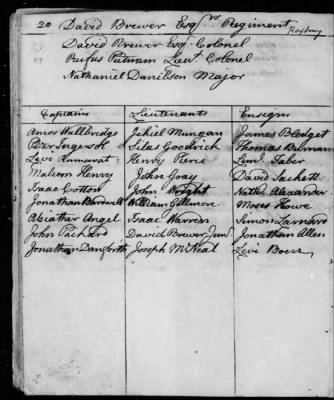 20 David Brewer Esqrs Regiment Roxbury
David Brewer Esqr Colonel
Rufus Putnam Lieut Colonel
Nathaniel Danilson Major
Captains Lieutenants Ensigns
Amos Wallbridge Jehiel Mungan James Blodget
Peter Ingersoll Silas Goodrich Thomas Burnam
Levi Rounsavat Henry Pierce Leml Taber
Malcom Henry John Gray David Sackett
Isaac Cotton John Wright Nathl Alexander
Jonathan Bardwell William Gillmore Moses Howe
Abiather Angel Isaac Warren Simon Larnard
John Packard David Brewer Junr Jonathan Allen
Jonathan Danforth Joseph McNeal Levi